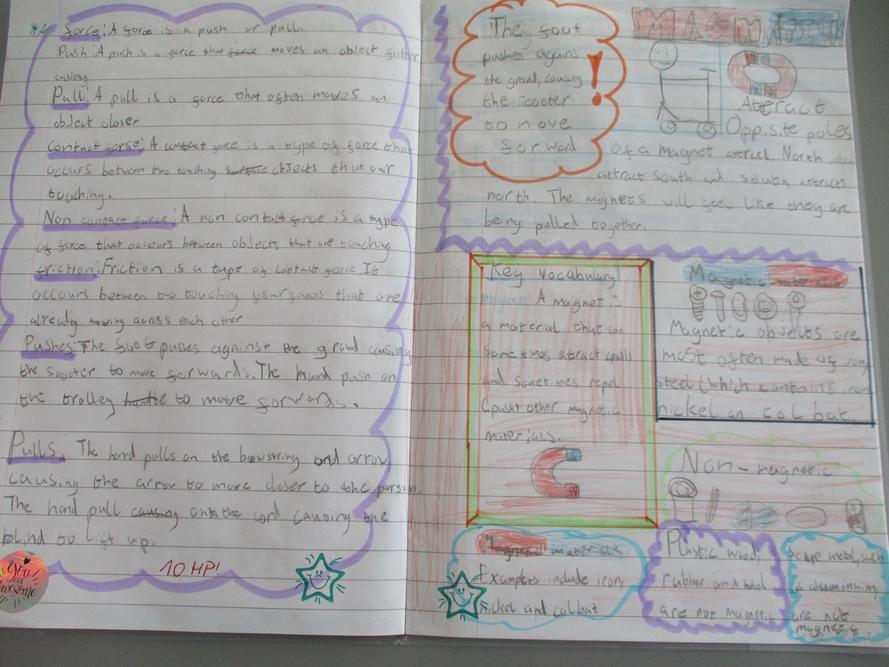 Force: A force is a push or pull.
Push: A push is a force that moves an object further
away
Pull: A pull is a force that often moves an
object closer
Contact forse: A contact force is a type of force that
occurs between two touching objects that our
touching.
Non contact force: A non contact force is a type
of force that occours between objects that are touching
friction: Friction is a type of contact force. It
occours between two touching surfaces that are
already moving across each other
Pushes: The foot pushes against the grand causing
the scooter to move forwards. The hand push on
the trolley to move forwards.
Pulls. The hand pulls on the bowstring and arrow
causing the arrow to move closer to the person.
The hand pull onto the cord causing the
blind to lift up.
You
awesome
10 HP!
The foot
pushes agains
the grand, causing
the scooter
to move
forword
!
MAGNETISM
Attract
Opposite poles
of a magnet attract. North
attract South and south attracts
north. The magnets will feel like they are
being pulled together.
Key vocabulary
A magnet is
a material that can
Sometimes atract (pull)
and sometimes repel
(push) other magnetic
materials.
Magnetic materials
Magnetic objects are
most often made of iron,
steel (which contains iron)
nickel an colbat.
Non-magnetic
materials
Examples include iron,
nickel and colbat
Plastic wood,
rubber and wool
are not magnetic
some metal, such
as aluminium,
are not
magnetic